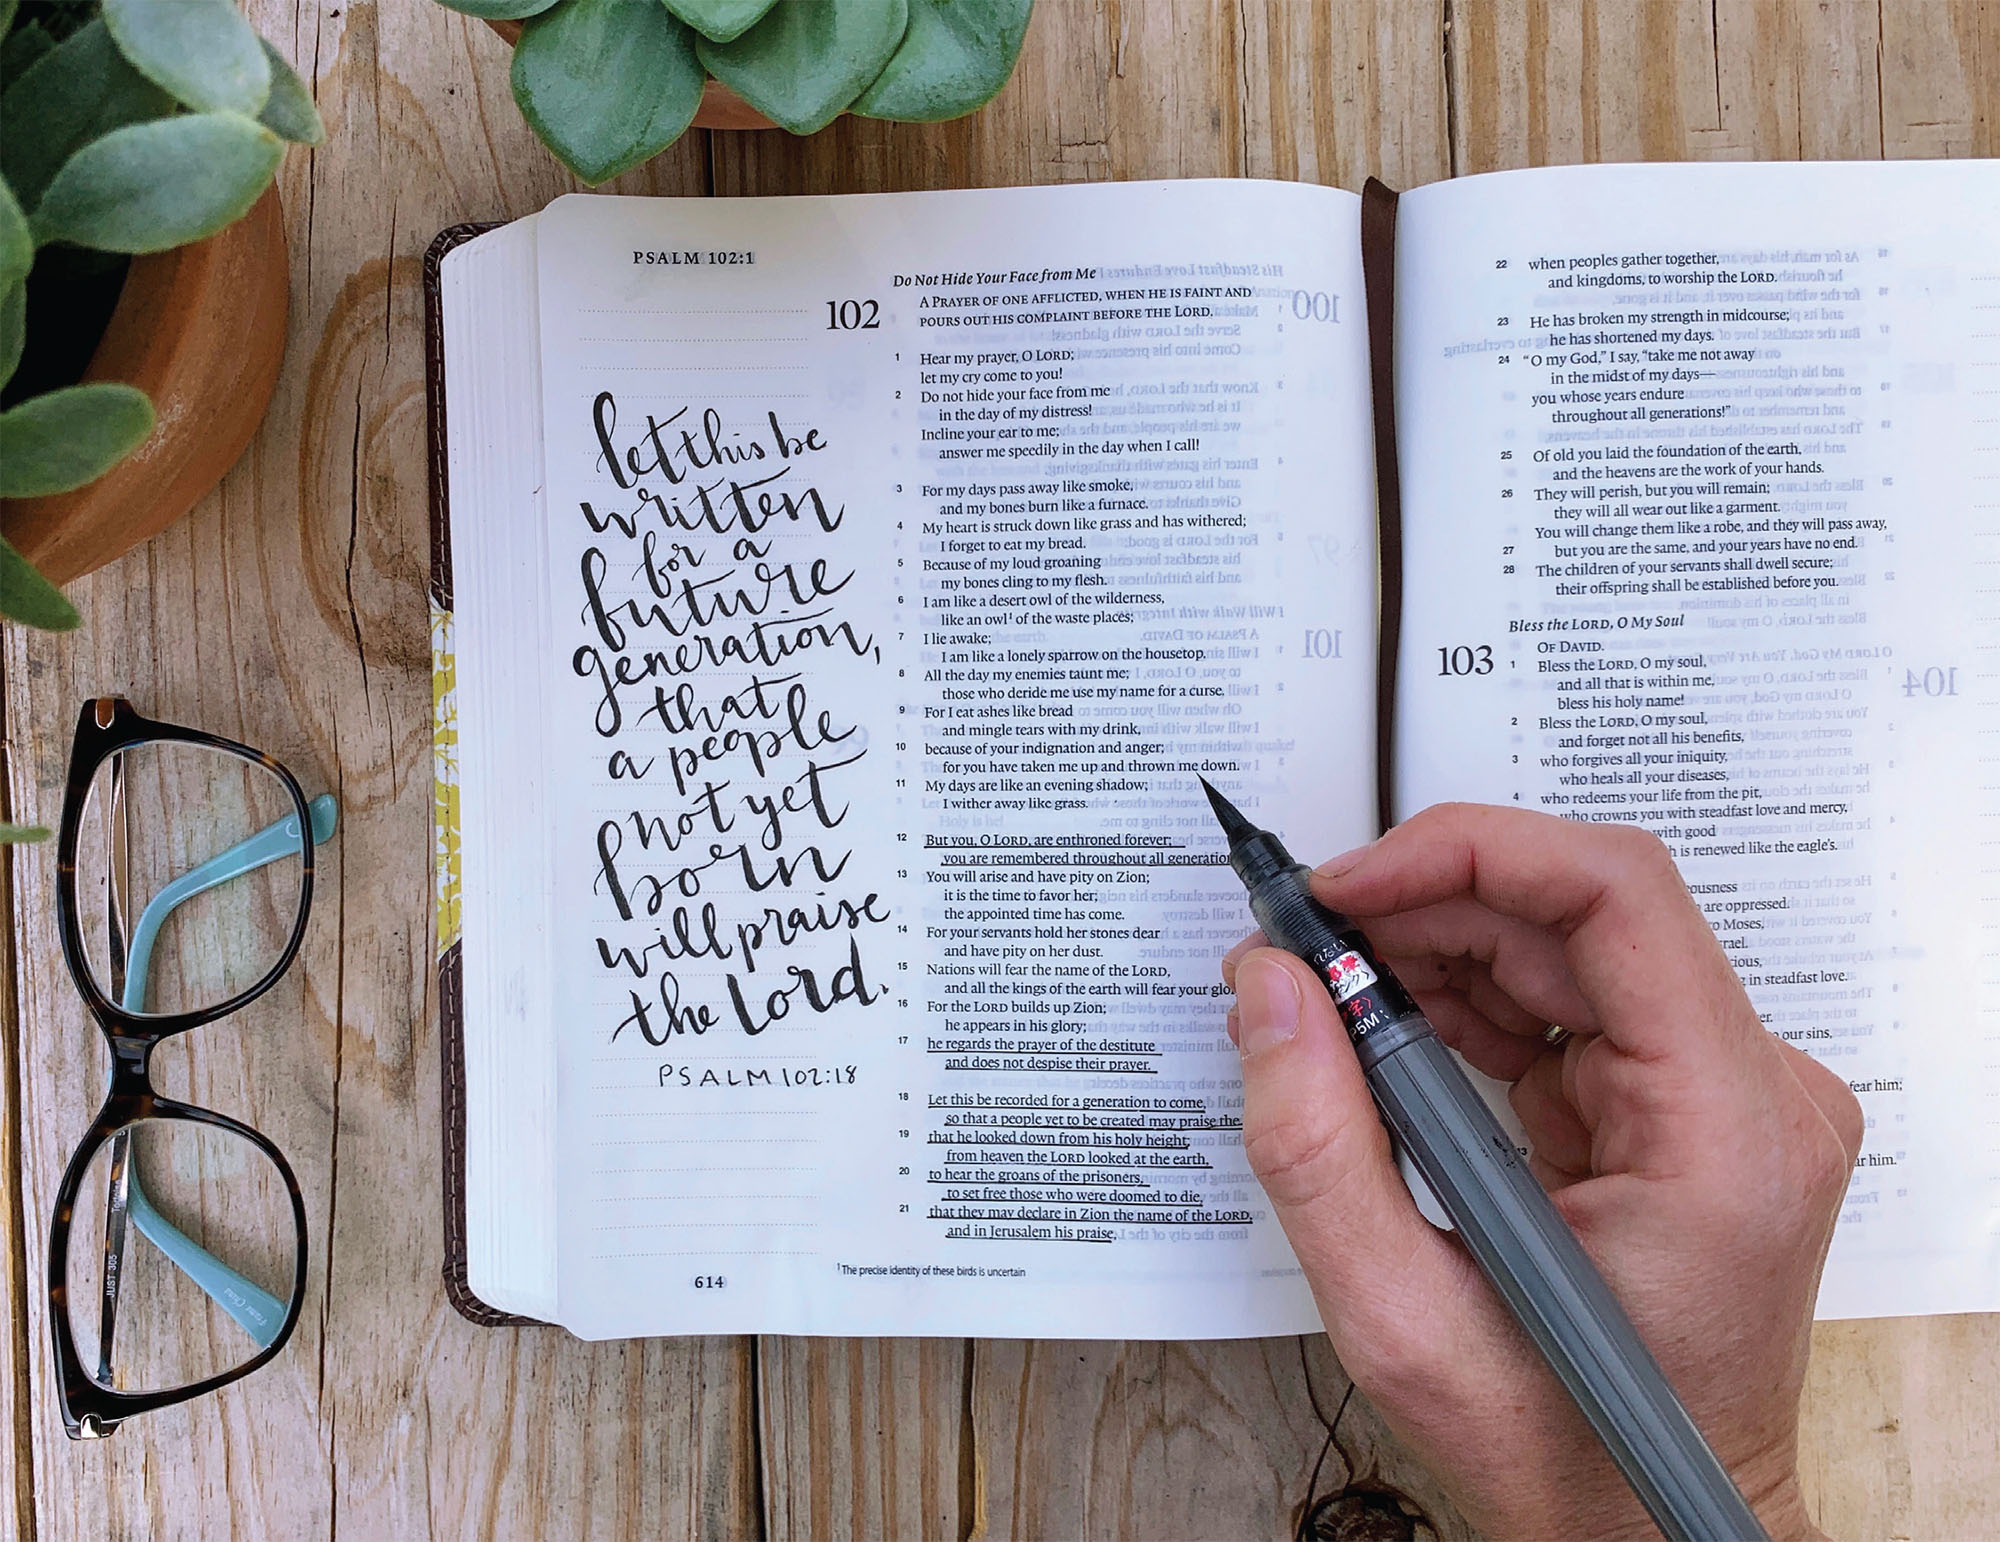 PSALM 102:1
let this be
written
for a
future
generation,
that
a people
not yet
born
will praise
the Lord.
PSALM 102:18
614
Do Not Hide Your Face from Me
102
A PRAYER OF ONE AFFLICTED, WHEN HE IS FAINT AND
POURS OUT HIS COMPLAINT BEFORE THE LORD.
1 Hear my prayer, O LORD;
let my cry come to you!
2 Do not hide your face from me
in the day of my distress!
Incline your ear to me;
answer me speedily in the day when I call!
3 For my days pass away like smoke,
and my bones burn like a furnace.
4 My heart is struck down like grass and has withered;
I forget to eat my bread.
5 Because of my loud groaning
my bones cling to my flesh.
6 I am like a desert owl of the wilderness,
like an owl¹ of the waste places;
7 I lie awake;
I am like a lonely sparrow on the housetop.
8 All the day my enemies taunt me;
those who deride me use my name for a curse.
9 For I eat ashes like bread
and mingle tears with my drink,
10 because of your indignation and anger;
for you have taken me up and thrown me down.
11 My days are like an evening shadow;
I wither away like grass.
12 But you, O LORD, are enthroned forever;
you are remembered throughout all generation
13 You will arise and have pity on Zion;
it is the time to favor her;
the appointed time has come.
14 For your servants hold her stones dear
and have pity on her dust.
15 Nations will fear the name of the LORD,
and all the kings of the earth will fear your glo
16 For the LORD builds up Zion;
he appears in his glory;
17 he regards the prayer of the destitute
and does not despise their prayer.
18 Let this be recorded for a generation to come,
so that a people yet to be created may praise the
19 that he looked down from his holy height;
from heaven the LORD looked at the earth,
20 to hear the groans of the prisoners,
to set free those who were doomed to die,
21 that they may declare in Zion the name of the LORD,
and in Jerusalem his praise,
¹ The precise identity of these birds is uncertain
22 when peoples gather together,
and kingdoms, to worship the LORD.
23 He has broken my strength in midcourse;
he has shortened my days.
24 "O my God," I say, "take me not away
in the midst of my days—
you whose years endure
throughout all generations!"
25 Of old you laid the foundation of the earth,
and the heavens are the work of your hands.
26 They will perish, but you will remain;
they will all wear out like a garment.
You will change them like a robe, and they will pass away,
27 but you are the same, and your years have no end.
28 The children of your servants shall dwell secure;
their offspring shall be established before you.
Bless the LORD, O My Soul
103
OF DAVID.
1 Bless the LORD, O my soul,
and all that is within me,
bless his holy name!
2 Bless the LORD, O my soul,
and forget not all his benefits,
3 who forgives all your iniquity,
who heals all your diseases,
4 who redeems your life from the pit,
who crowns you with steadfast love and mercy,
with good
is renewed like the eagle's.
are oppressed.
Moses,
in steadfast love.
our sins,
fear him;
him.
13
P5M
JUST 305